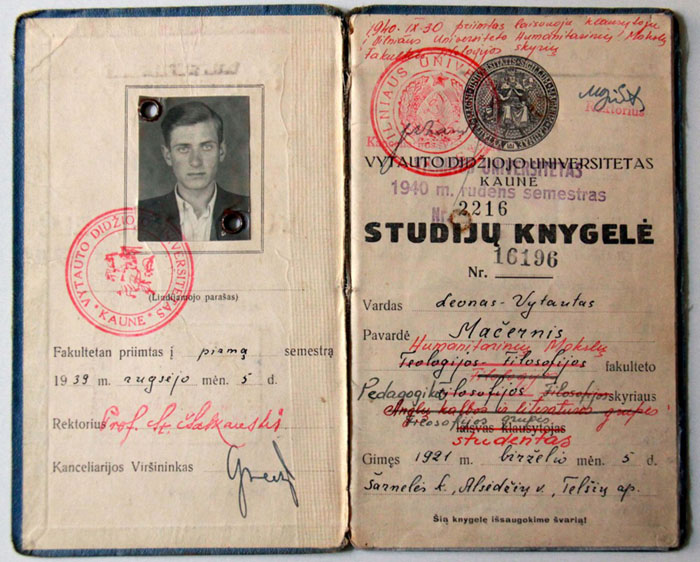 VYTAUTO DIDŽIOJO UNIVERSITETAS
* KAUNE *
(Liudijamojo parašas)
Fakultetan priimtas į pirmą semestrą
1939 m. rugsėjo mėn. 5 d.
Rektorius Prof. St. Šalkauskis
Kanceliarijos Viršininkas
1940-IX-30 priimtas laisvuoju klausytoju
į Vilniaus Universiteto Humanitarinių Mokslų
Fakulteto Filologijos skyrių
Rektorius
VILNIAUS UNIVERSITETAS
VYTAUTO DIDŽIOJO UNIVERSITETAS
KAUNE
UNIVERSITETAS
1940 m. rudens semestras
Nr. 2216
STUDIJŲ KNYGELĖ
16196
Nr.
Vardas Leonas-Vytautas
Pavardė Mačernis
Humanitarinių Mokslų
Teologijos-Filosofijos fakulteto
Filologijos
Pedagogikos Filosofijos Filosofijos skyriaus
Anglų kalbos ir literatūros grupės
Filosofijos grupės
laisvas klausytojas
studentas
Gimęs 1921 m. birželio mėn. 5 d.
Šarnelės k., Alsėdžių v., Telšių ap.
Šią knygelę išsaugokime švarią!